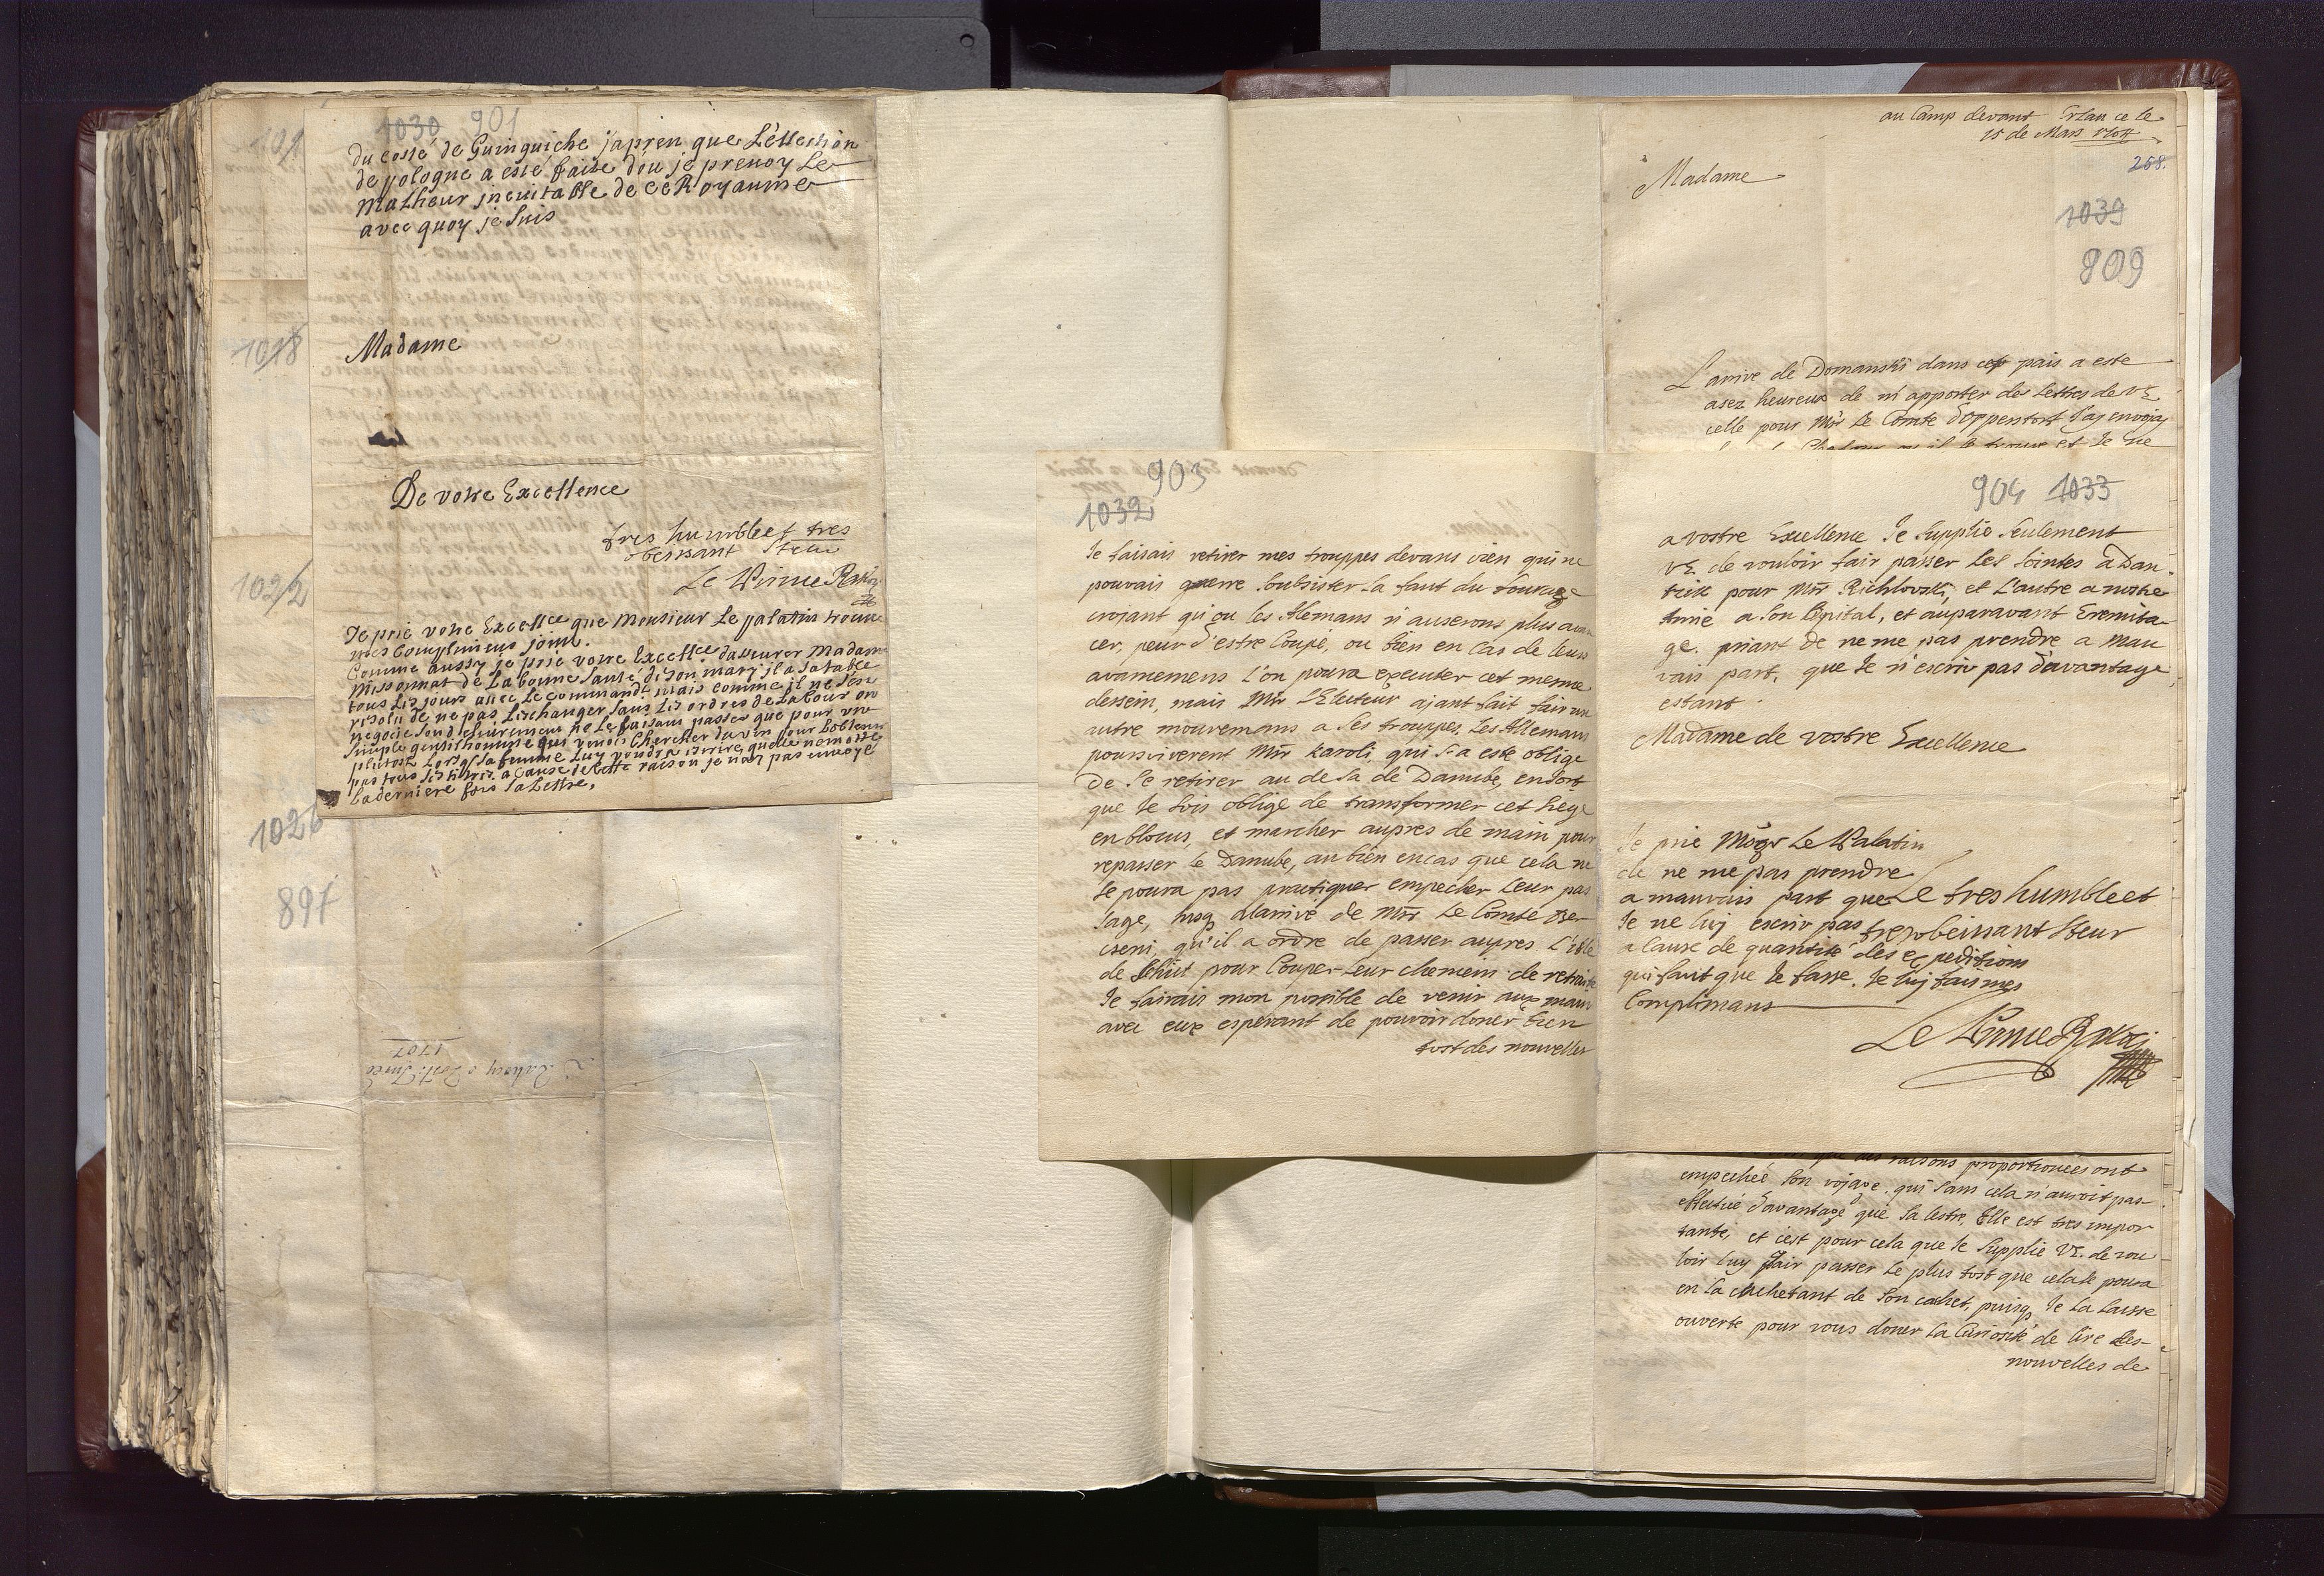 1030 901
du costé de Guinguiche japren que Léllection
de pologne a esté faite dou je prenoy Le
malheur inevitable de ce Royaume
avec quoy je suis
Madame
De votre Excellence
tres humble et tres
obeissant
Le Prince
Je prie votre Excellce que Monsieur Le palatin trouve
mes complimens joint.
Comme aussy je prie votre Excellce dasseurer Madame
Missonnat de La bonne santé de son mary il a sa table
tous les jours avec Le commandt mais comme il ne s'est
resolu de ne pas Leschanger sans Les ordres de La Cour on
negocie
simple gentilhomme qui venoit chercher du vin pour
plutost Lorsq sa femme Luy voudra escrire quelle ne mette
pas tous ses titres a cause de cette raison je nay pas envoyé
La derniere fois sa Lettre.
1018
1022
1026
891
1707
903
1032
Je faisais retirer mes trouppes devans vien qui ne
pouvais guerre soubsister la faut du fourage
crojant qu'ou les Alemans n'auserons plus avan
cer, peur d'estre Coupé, ou bien en Cas de leurs
avancemens l'on poura executer cet meme
dessein, mais Mr L'Electeur ajant fait fair un
autre mouvemans a ses trouppes, Les Allemans
poursviverent Mr Karoli, qui s'a este oblige
De se retirer au de la de Danube, en sort
que Je sois oblige de transformer cet siege
en blocus, et marcher aupres de main pour
repasser le Danube, au bien en cas que cela ne
se poura pas practiquer empecher leur pas
sage, jusq alarivé de Mr Le Comte Ber
cseni, qu'il a ordre de passer aupres L'isle
de Schüt pour Couper leur chemein de retraite
Je fairais mon possible de venir aux mains
avec eux esperant de pouvoir doner bien
tost des nouvelles
au Camp devant Erlau ce le
15 de Mars 1704
258.
Madame
1039
809
L'arrive de Domanski dans cet pais a este
asez heureux de m'apporter des Lettres de VE
celle pour Mr Le Comte d'oppenstort J'ay envojay
904 1033
a vostre Excellence Je supplie seulement
VE de vouloir fair passer les jointes a Dan
tsik pour Mr Richlovski, et L'autre a nostre
amie a son Opital, et auparavant Eremita
ge. priant de ne me pas prendre a mau
vais part, que Je n'escriv pas davantage
estant
Madame de vostre Excellence
Je prie Mögr Le Palatin
de ne me pas prendre
a mauvais part que Le tres humble et
Je ne luy escriv pas tres obeissant Steur
a Cause de quantité des expeditions
qui faut que Je fasse. Je luy fais mes
Complimans
Le Prince Rakoczi
que des raisons proportionees ont
empeché son vojage. qui sans cela n'auroit pas
effectué d'avantage que sa lestre, Elle est tres impor
tante, et c'est pour cela que Je supplie VE. de vou
loir luy fair passer le plus tost que cela se poura
en la cachetant de son cachet, puisq Je la laisse
ouverte pour vous doner la Curiosité de lire les
nouvelles de